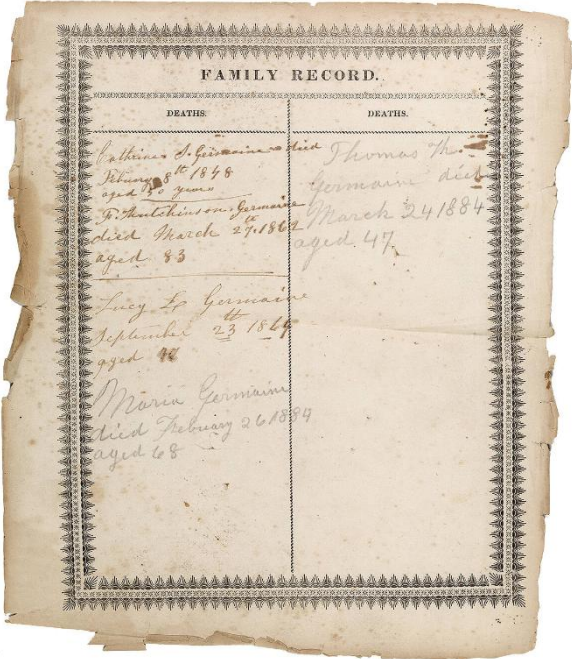 FAMILY RECORD.
DEATHS.
Cathrine S. Germaine died
Febuary 8th 1848
aged years
F. Hutchinson Germaine
died March 27th 1862
aged 83
Lucy Germaine
September 23th
aged
Maria Germaine
died Febuary 26 1884
aged 68
DEATHS.
Thomas
Germaine died
March 24 1884
aged 47